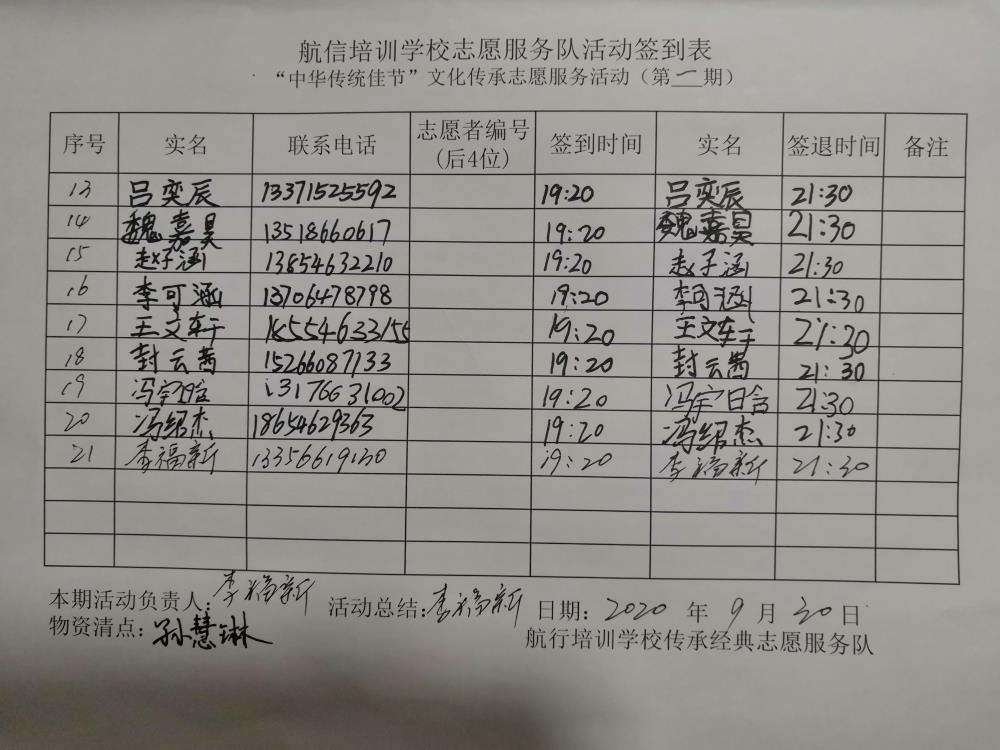 航信培训学校志愿服务队活动签到表
“中华传统佳节”文化传承志愿服务活动（第一期）
序号 实名 联系电话 志愿者编号(后4位) 签到时间 实名 签退时间 备注
13 吕奕辰 13371525592 19:20 吕奕辰 21:30
14 魏嘉昊 13518660617 19:20 魏嘉昊 21:30
15 赵子涵 13854632210 19:20 赵子涵 21:30
16 李可涵 13706478798 19:20 李可涵 21:30
17 王文轩 18554633155 19:20 王文轩 21:30
18 封云茜 15266087133 19:20 封云茜 21:30
19 冯宇晗 13176631002 19:20 冯宇晗 21:30
20 冯绍杰 18654629363 19:20 冯绍杰 21:30
21 李福新 13356619130 19:20 李福新 21:30
本期活动负责人：李福新 活动总结：李福新 日期：2020 年 9 月 30 日
物资清点：孙慧琳
航行培训学校传承经典志愿服务队